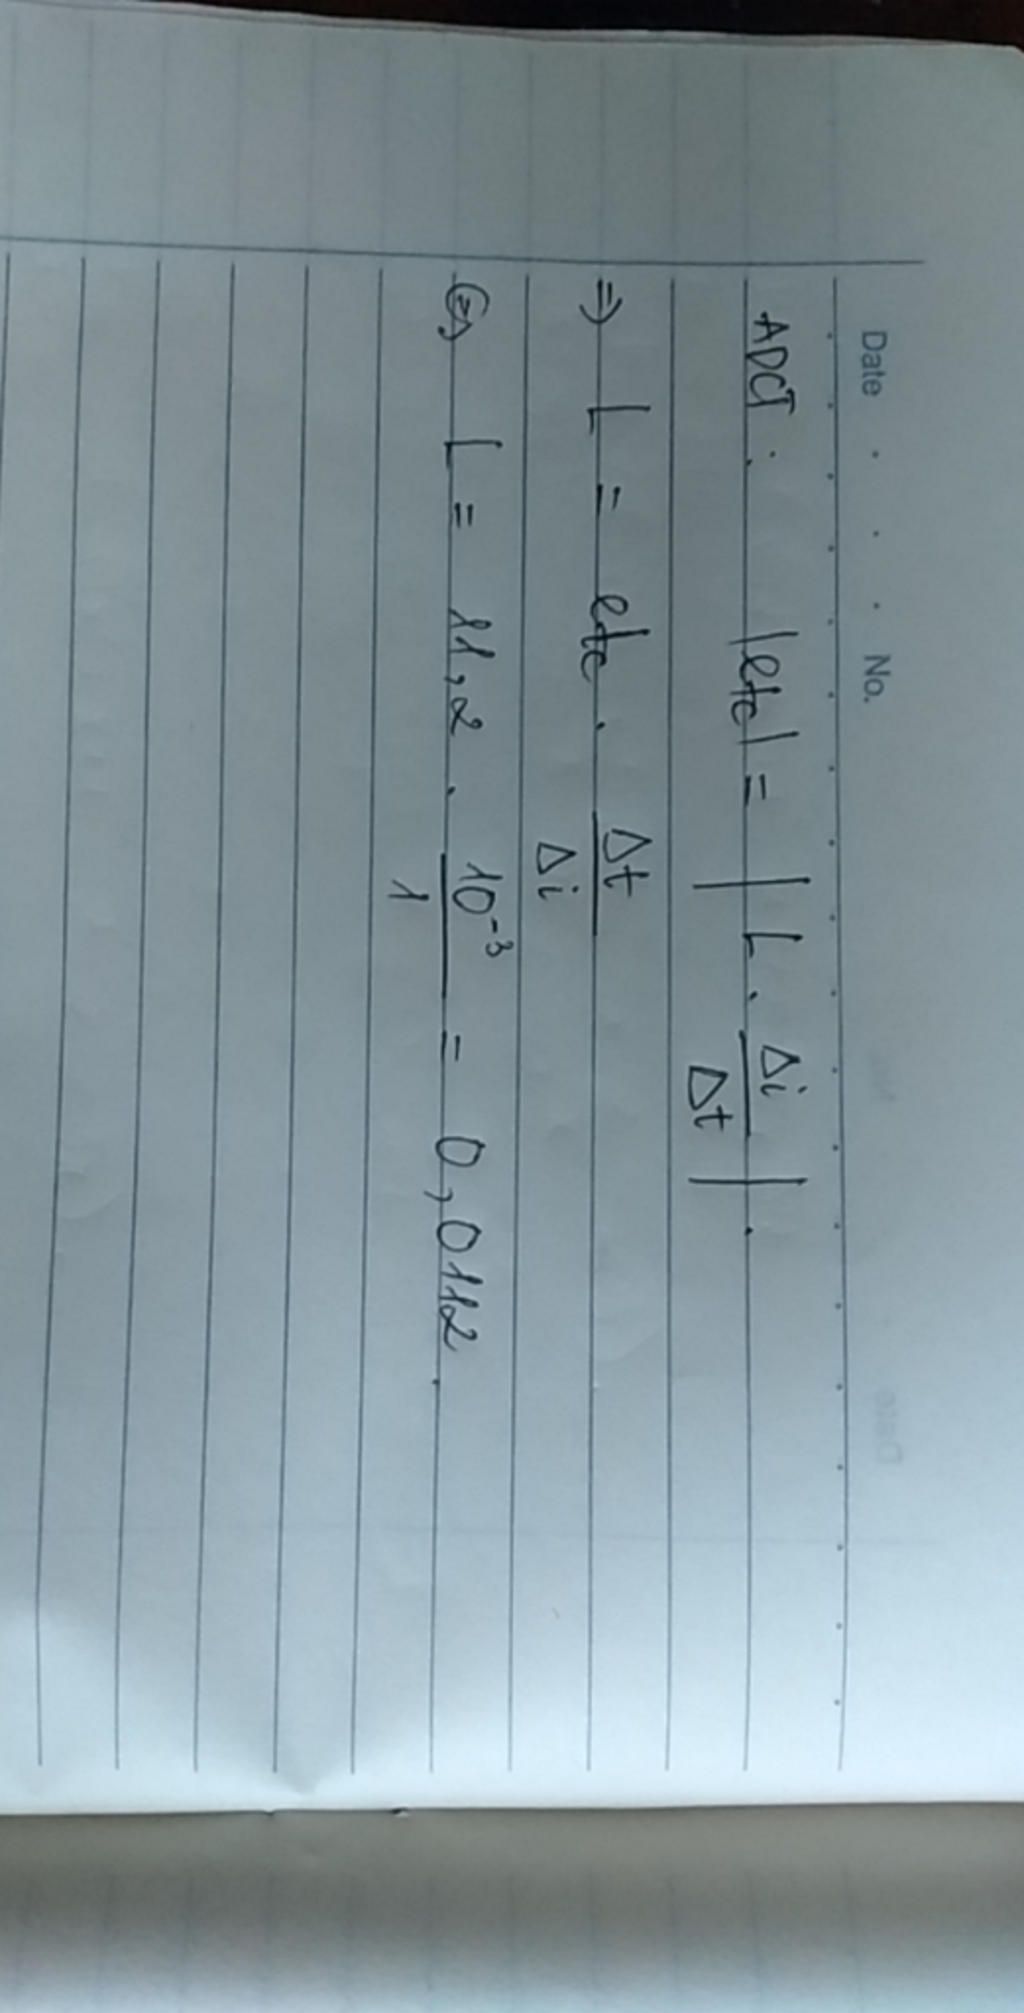 Date . . . No.
ADCT : |etc| = | L . Δi/Δt | .
=> L = etc . Δt/Δi
<=> L = 11,2 . 10⁻³/1 = 0,0112 .